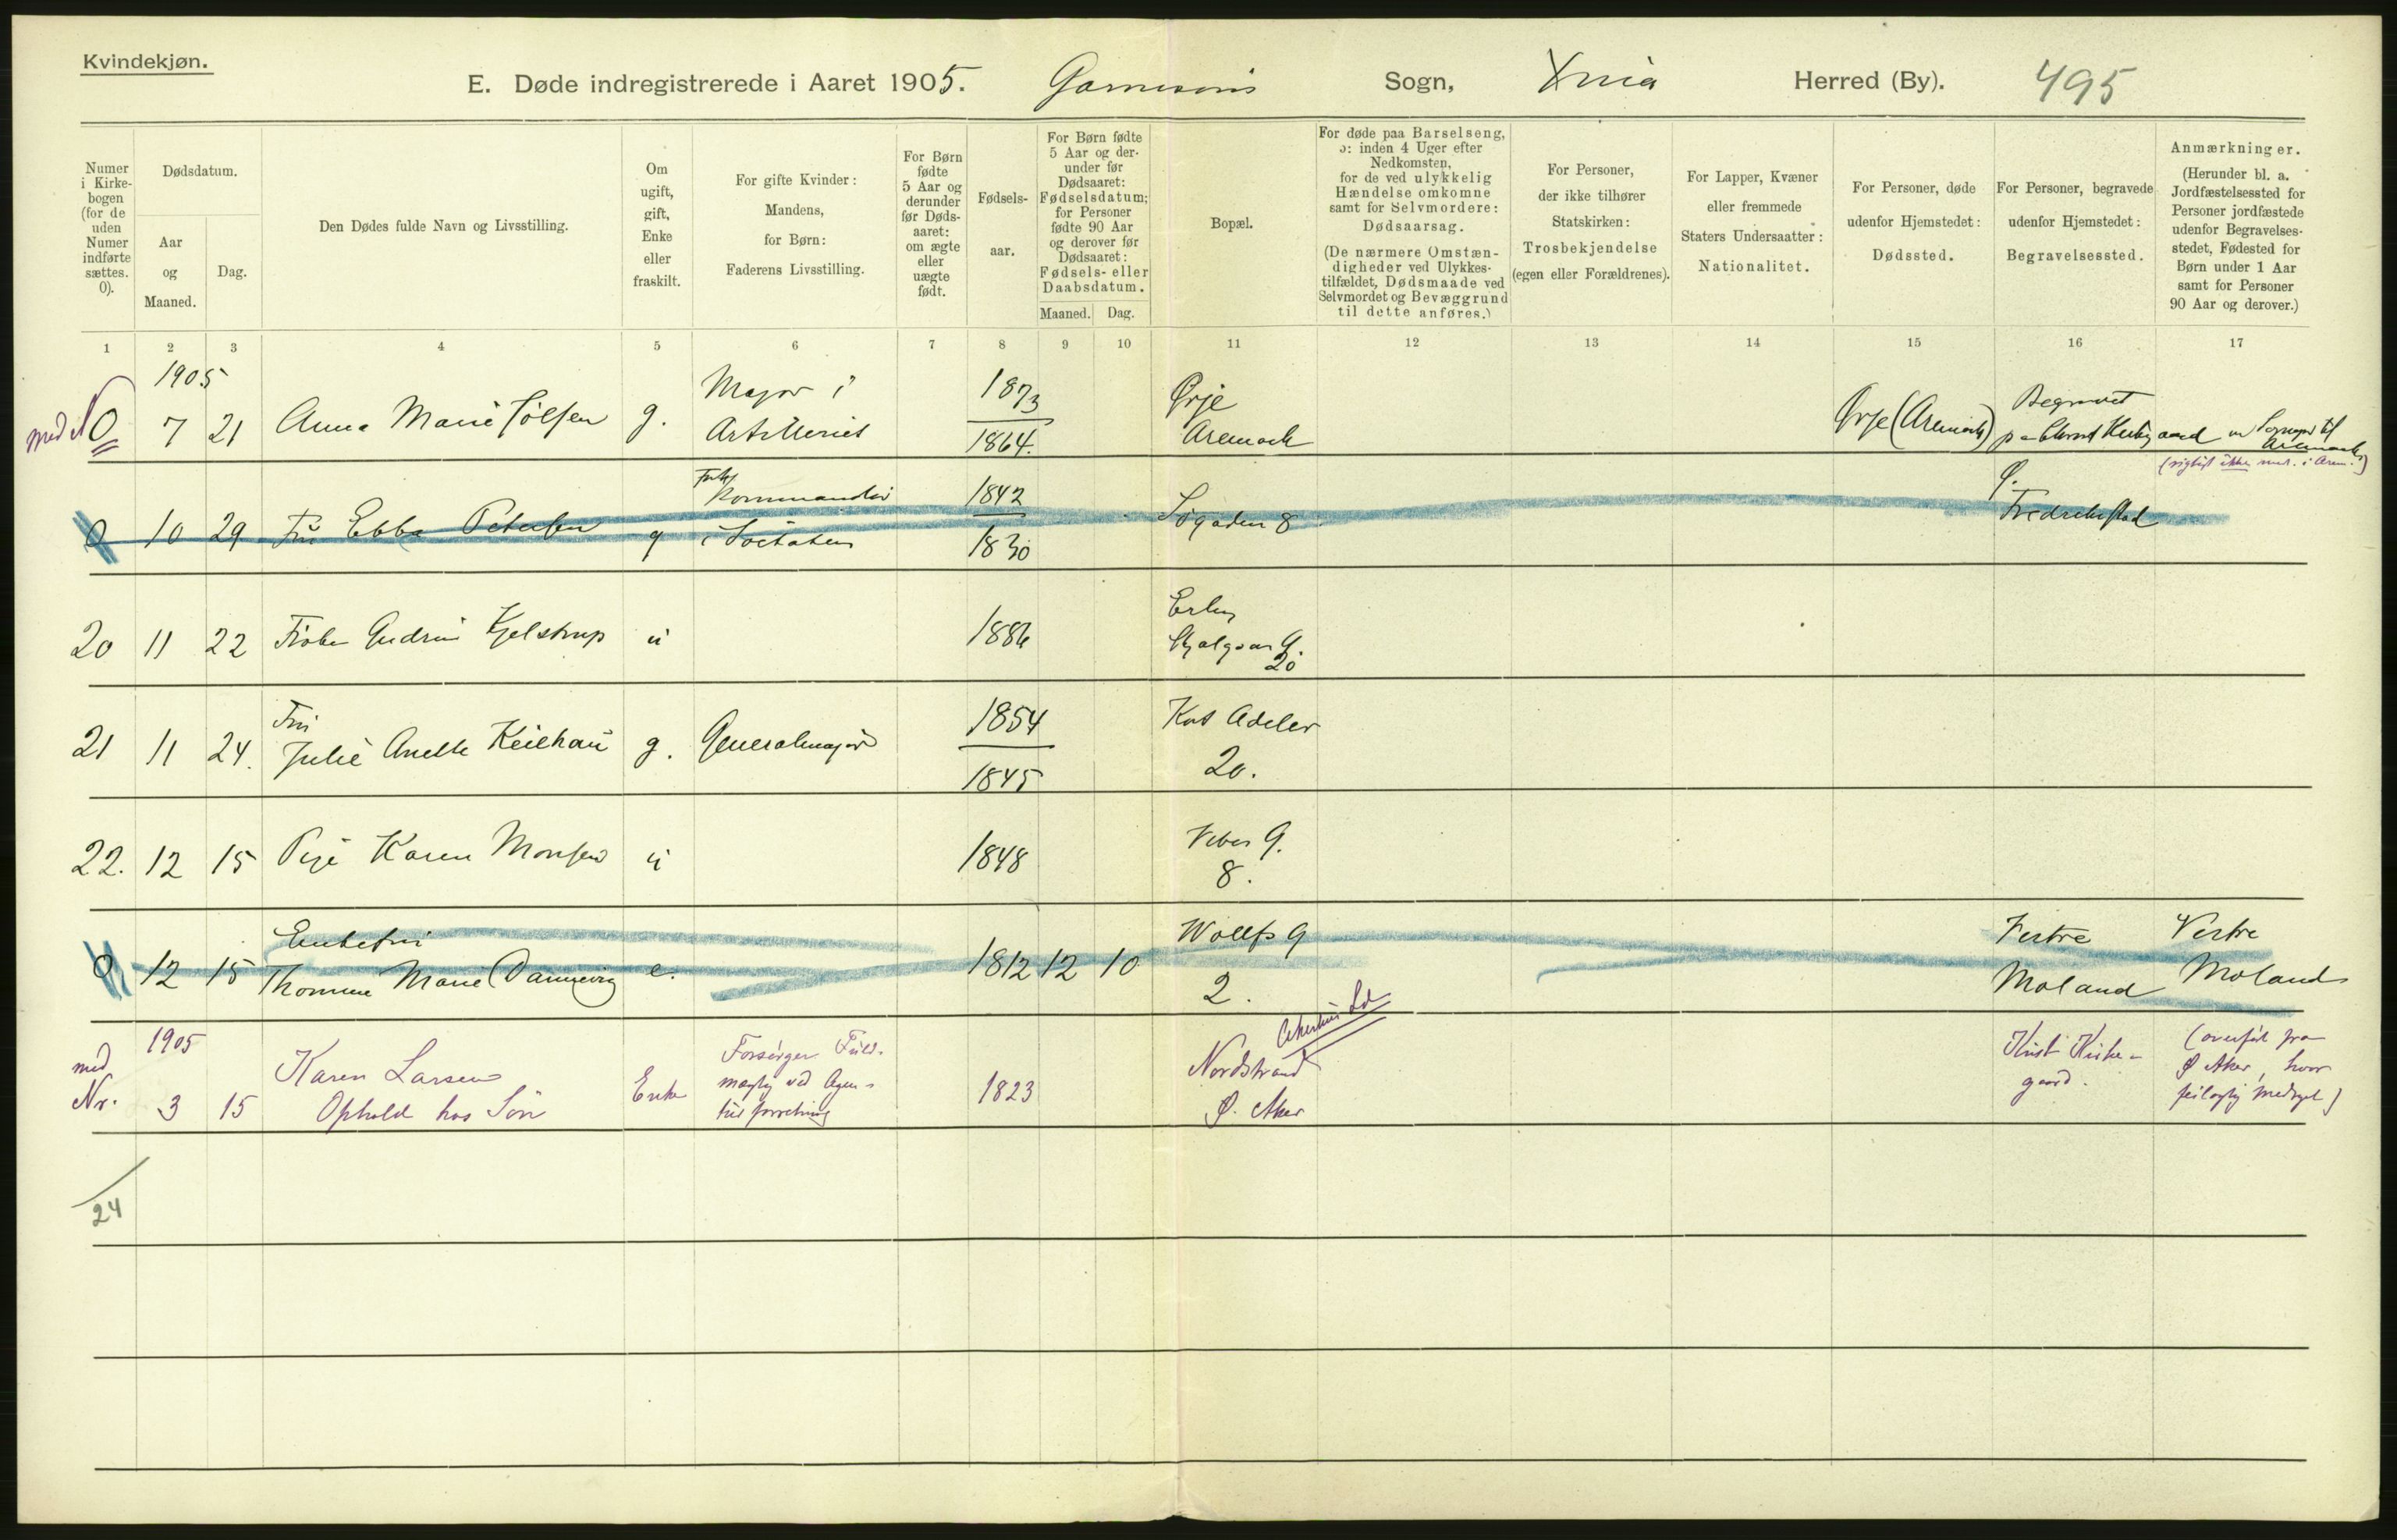 Kvindekjøn.
E. Døde indregistrerede i Aaret 1905. Garnisons Sogn, Xnia Herred (By). 495
Numer i Kirkebogen (for de uden Numer indførte sættes. 0).
Dødsdatum.
Aar og Maaned.
Dag.
Den Dødes fulde Navn og Livsstilling.
Om ugift, gift, Enke eller fraskilt.
For gifte Kvinder: Mandens, for Børn: Faderens Livsstilling.
For Børn fødte 5 Aar og derunder før Dødsaaret: om ægte eller uægte født.
Fødselsaar.
For Børn fødte 5 Aar og derunder før Dødsaaret: Fødselsdatum; for Personer fødte 90 Aar og derover før Dødsaaret: Fødsels- eller Daabsdatum.
Maaned. Dag.
Bopæl.
For døde paa Barselseng, ɔ: inden 4 Uger efter Nedkomsten, for de ved ulykkelig Hændelse omkomne samt for Selvmordere: Dødsaarsag.
(De nærmere Omstændigheder ved Ulykkestilfældet, Dødsmaade ved Selvmordet og Bevæggrund til dette anføres.)
For Personer, der ikke tilhører Statskirken: Trosbekjendelse (egen eller Forældrenes).
For Lapper, Kvæner eller fremmede Staters Undersaatter: Nationalitet.
For Personer, døde udenfor Hjemstedet: Dødssted.
For Personer, begravede udenfor Hjemstedet: Begravelsessted.
Anmærkninger.
(Herunder bl. a. Jordfæstelsessted for Personer jordfæstede udenfor Begravelsesstedet, Fødested for Børn under 1 Aar samt for Personer 90 Aar og derover.)
1 2 3 4 5 6 7 8 9 10 11 12 13 14 15 16 17
1905
0 7 21 Anna Marie Jølsen g. Major i Artilleriet 1873 1864. Ørje Aremark Ørje (Aremark) Begravet
Aremark
0 10 29 Fru Ebba Petersen g Kommandør 1842 1830 Søgaden 8 Fredrikstad
20 11 22 Frøken Gudrun Kjelstrup u 1886 Erling Skjalgsøns G. 20
21 11 24. Fru Julie Anette Keilhau g. Generalmajor 1854 1845 Kort Adeler 20.
22. 12 15 Pige Karen Monsen u 1848 Vibes G. 8.
0 12 15 Enkefru Thomine Marie Dannevig e. 1812 12 10 Wolffs G 2. Vestre Moland Vestre Moland
med Nr. 1905 3 15 Karen Larsen Ophold hos Søn Enke Forsørger Fuldmægtig ved Agenturforretning 1823 Akershus Nordstrand Ø. Aker Krist Kirkegaard. (overført fra Ø Aker, hvor feilagtig medregt)
24